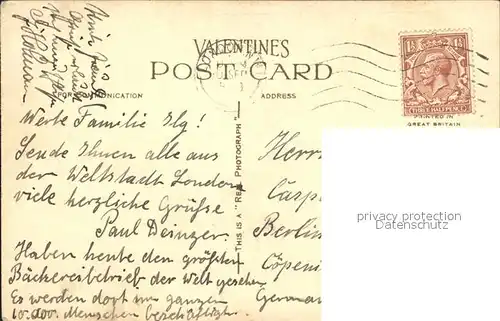 VALENTINES
POST CARD
FOR COMMUNICATION
ADDRESS
THREE HALFPENCE
PRINTED IN
GREAT BRITAIN
THIS IS A "REAL PHOTOGRAPH"
Werte Familie Ilg!
Sende Ihnen alle aus
der Weltstadt London
viele herzliche Grüsse
Paul Deinzer.
Haben heute den größten
Bäckereibetrieb der Welt gesehen
Es werden dort im ganzen
10.000. Menschen beschäftigt.
Herr
Carp
Berlin
Cöpeni
German
privacy protection
Datenschutz